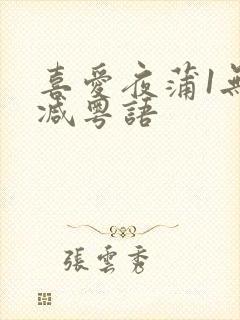 喜愛夜蒲1無
減粵語
張雲秀